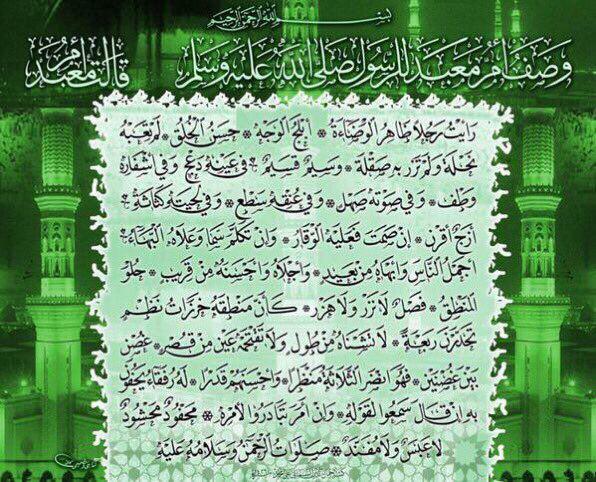 بسم الله الرحمن الرحيم
وصف أم معبد للرسول صلى الله عليه وسلم قالت أم معبد
رأيت رجلا ظاهر الوضاءة * ابلج الوجه * حسن الخلق * لم تعبه
نحلة ولم تزر به صقلة * وسيم قسيم * في عينيه دعج وفي اشفاره
وطف * وفي صوته صهل * وفي عنقه سطع * وفي لحيته كثاثة *
أزج أقرن * إن صمت فعليه الوقار * وإن تكلم سما وعلاه البهاء *
أجمل الناس وابهاه من بعيد * وأجلاه واحسنه من قريب * حلو
المنطق * فصل لا نزر ولا هزر * كأن منطقه خرزات نظم
يتحدرن ربعة * لا تشناه من طول ولا تقتحمه عين من قصر * غصن
بين غصنين * فهو انضر الثلاثة منظرا * واحسنهم قدرا * له رفقاء يحفون
به إن قال سمعوا لقوله * وإن أمر تبادروا لأمره * محفود محشود
لا عبس ولا مفند * صلوات الرحمن وسلامه عليه